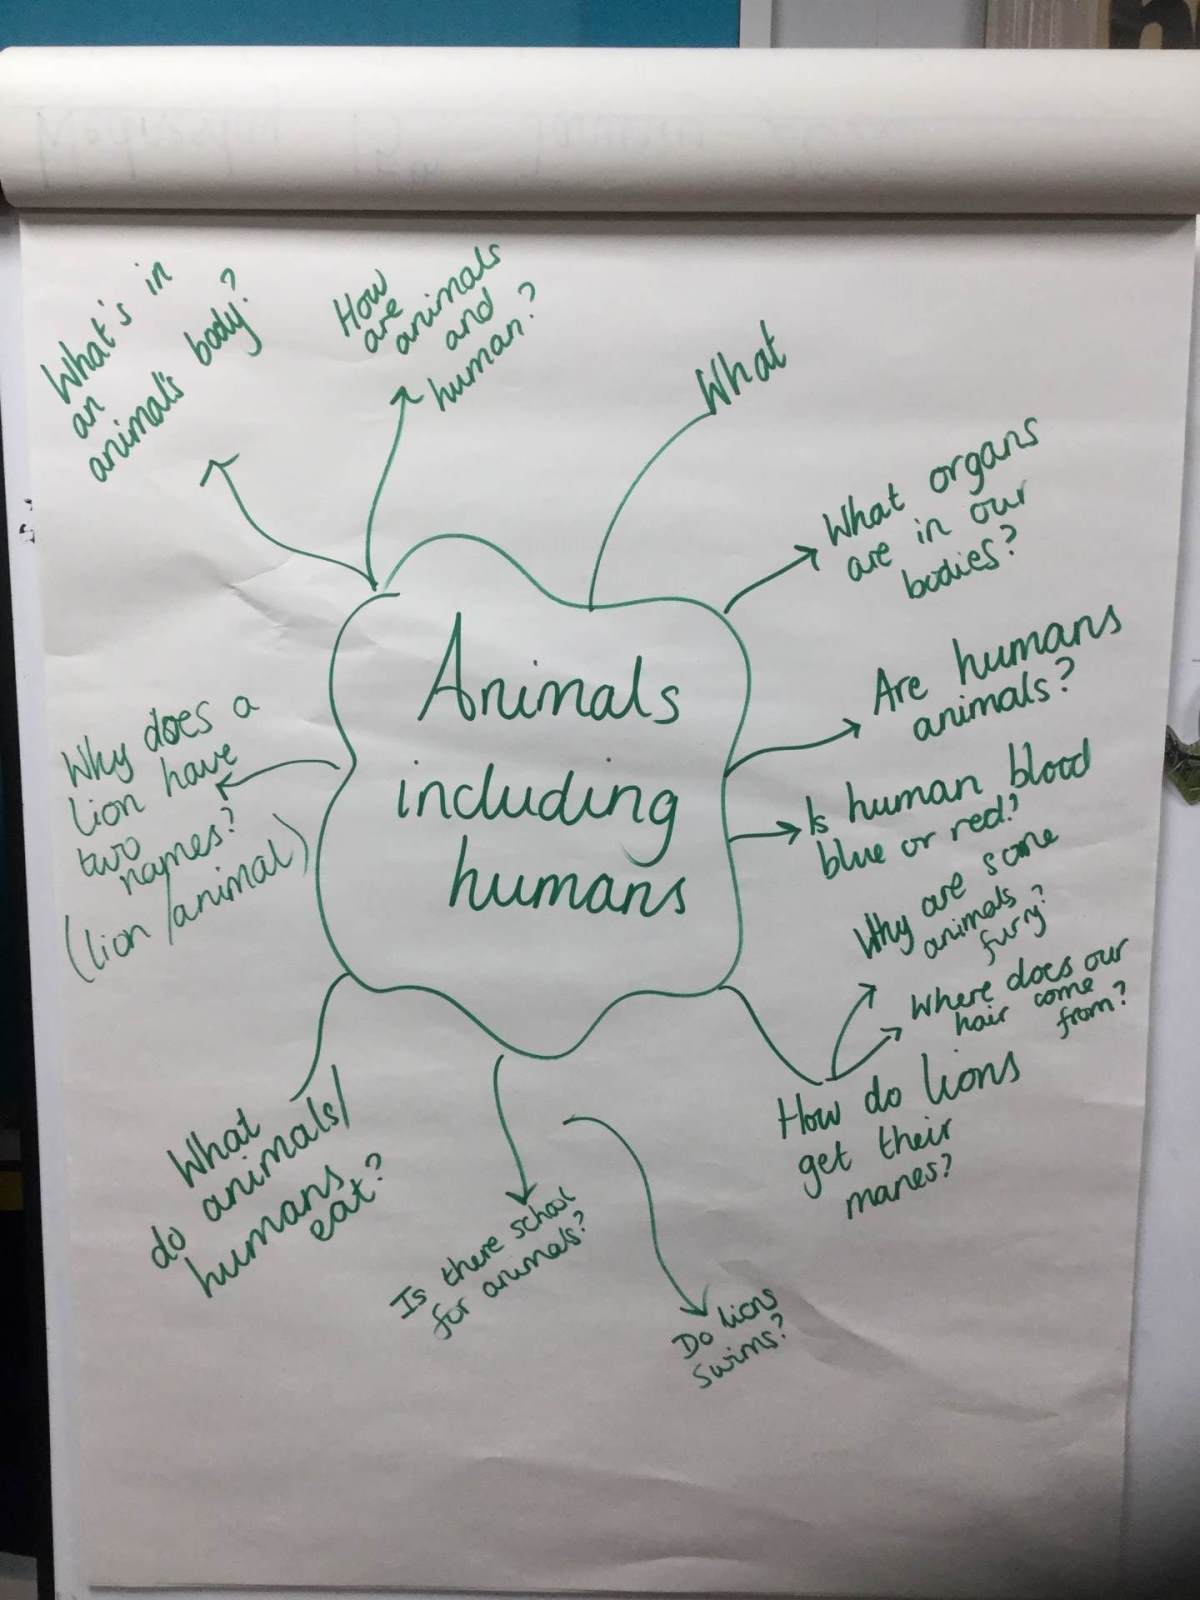 Animals
including
humans
What's in
an
animal's body?
How
are
animals
and
human?
What
What organs
are in our
bodies?
Are humans
animals?
Is human blood
blue or red?
Why are some
animals
furry?
Where does our
hair come
from?
How do lions
get their
manes?
Do lions
swims?
Is there school
for animals?
What
do animals/
humans
eat?
Why does a
lion have
two
names?
(lion/animal)